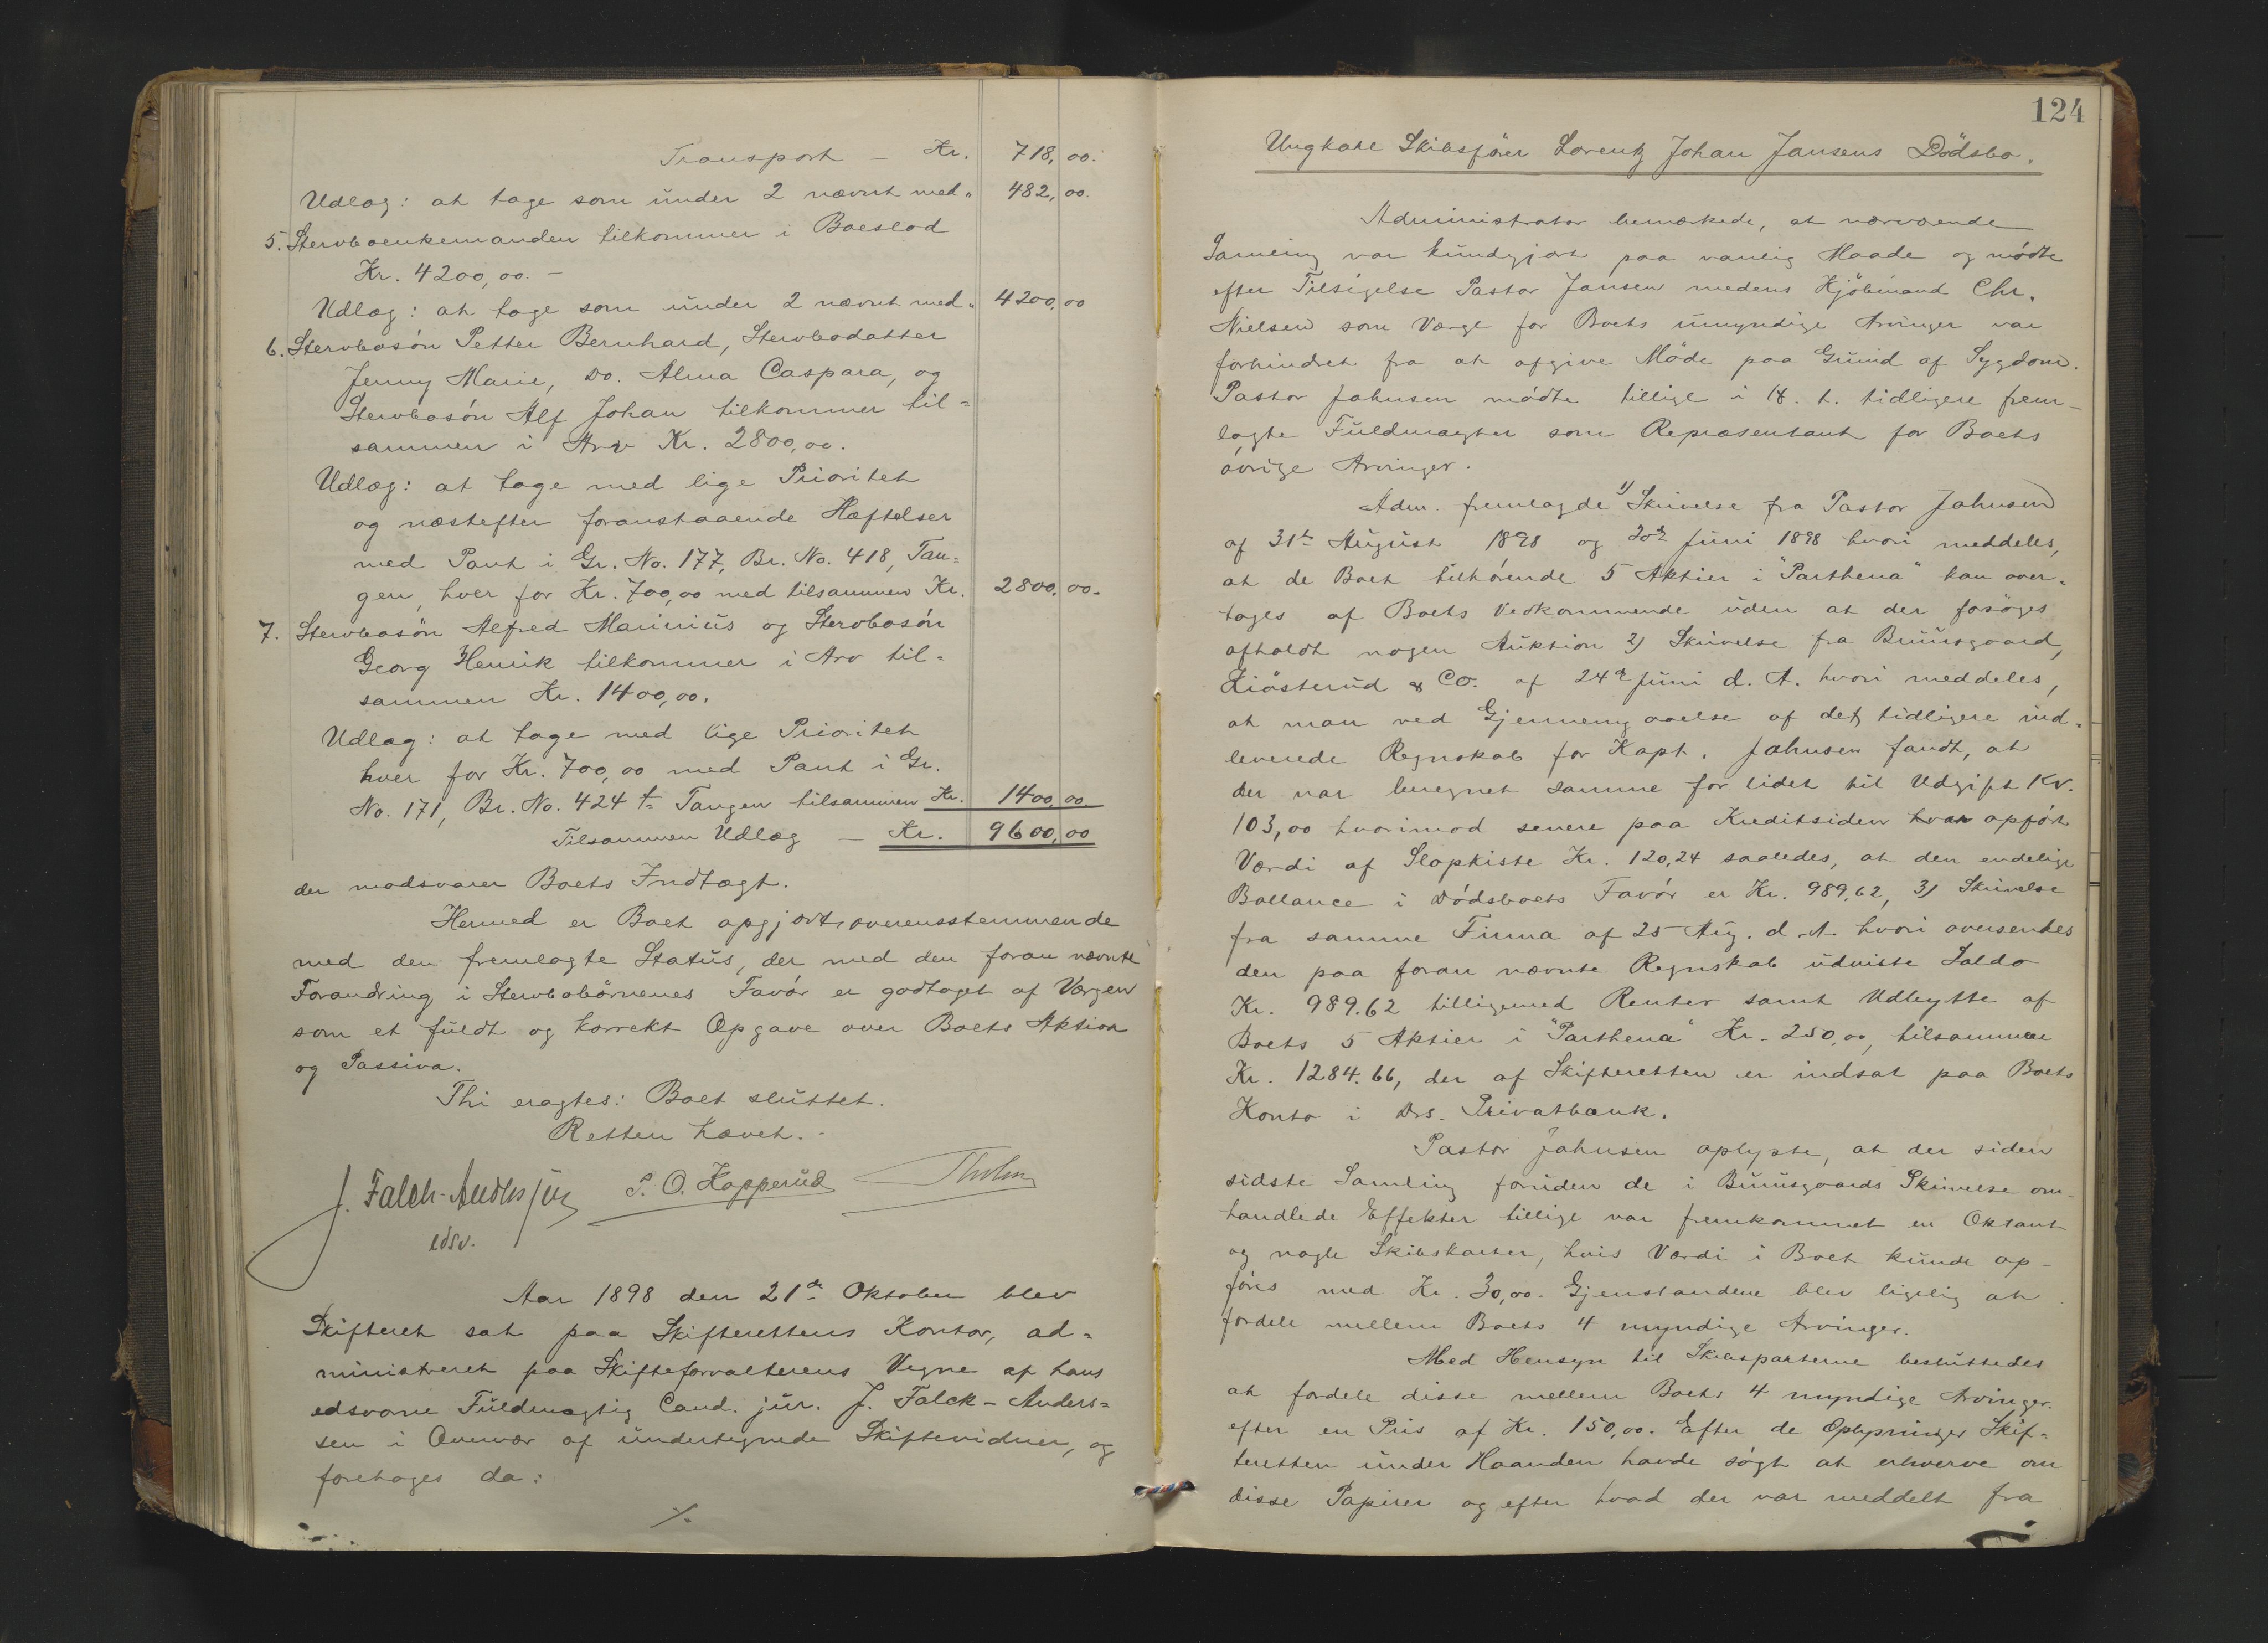 Transport - Kr. 718,00.
Udlæg: at tage som under 2 nævnt med " 482,00.
5. Stervboenkemanden tilkommer i Boeslod
Kr. 4200,00. -
Udlæg: at tage som under 2 nævnt med " 4200,00
6. Stervbosön Petter Bernhard, Stervbodatter
Jenny Marie, Do. Alma Caspara, og
Stervbosön Alf Johan tilkommer til=
sammen i Arv Kr. 2800,00.
Udlæg: at tage med lige Prioritet
og næstefter foranstaaende Hæftelser
med Pant i Gr. No. 177, Br. No. 418, Tan=
gen, hver for Kr. 700,00 med tilsammen Kr. 2800,00.
7. Stervbosön Alfred Marinius og Stervbosön
Georg Henrik tilkommer i Arv til=
sammen Kr. 1400,00.
Udlæg: at tage med lige Prioritet
hver for Kr. 700,00 med Pant i Gr.
No. 171, Br. No. 424 Tangen tilsammen Kr. 1400,00
Tilsammen Udlæg - Kr. 9600,00
der modsvarer Boets Indtægt.
Hermed er Boet opgjort overensstemmende
med den fremlagte Status, der med den foran nævnte
Forandring i Stervbobörnenes Favör er godtaget af Værgen
som et fuldt og korrekt Opgave over Boets Aktiva
og Passiva.
Thi eragtes: Boet sluttet.
Retten hævet. -
J. Falck-Anderssen P. O. Hopperud Tholm
edsv.
Aar 1898 den 21de Oktober blev
Skifteret sat paa Skifterettens Kontor, ad=
ministreret paa Skifteforvalterens Vegne af hans
edsvorne Fuldmægtig Cand. jur. J. Falck-Anders=
sen i Overvær af undertegnede Skiftevidner, og
foretoges da:
./.
124
Ungkarl Skibsförer Lorentz Johan Jansens Dödsbo.
Administrator bemærkede, at nærværende
Samling var kundgjort paa vanlig Maade og mödte
efter Tilsigelse Pastor Jansen medens Kjöbmand Chr.
Nielsen som Værge for Boets umyndige Arvinger var
forhindret fra at afgive Möde paa Grund af Sygdom.
Pastor Jahnsen mödte tillige i H. t. tidligere frem-
lagte Fuldmagter som Repræsentant for Boets
övrige Arvinger.
Adm. fremlagde 1) Skrivelse fra Pastor Jahnsen
af 31te August 1898 og 30te Juni 1898 hvori meddeles,
at de Boet tilhörende 5 Aktier i "Parthena" kan over-
tages af Boets Vedkommende uden at der forsöges
afholdt nogen Auktion 2) Skrivelse fra Bruusgaard,
Kiösterud & Co. af 24de Juni d. A. hvori meddeles,
at man ved Gjennemgaaelse af det tidligere ind=
leverede Regnskab for Kapt. Jahnsen fandt, at
der var beregnet samme for lidet til Udgift Kr.
103,00 hvorimod senere paa Kreditsiden var opfört
Værdi af Slopkiste Kr. 120,24 saaledes, at den endelige
Ballance i Dödsboets Favör er Kr. 989,62, 3) Skrivelse
fra samme Firma af 25 Aug. d. A. hvori oversendes
den paa foran nævnte Regnskab udviste Saldo
Kr. 989.62 tilligemed Renter samt Udbytte af
Boets 5 Aktier i "Parthena" Kr. 250,00, tilsammen
Kr. 1284.66, der af Skifteretten er indsat paa Boets
Konto i Drs. Privatbank.
Pastor Jahnsen oplyste, at der siden
sidste Samling foruden de i Bruusgaards Skrivelse om-
handlede Effekter tillige var fremkommet en Oktant
og nogle Skibskarter, hvis Værdi i Boet kunde op-
föres med Kr. 30,00. Gjenstandene blev ligelig at
fordele mellem Boets 4 myndige Arvinger.
Med Hensyn til Skibsparterne besluttedes
at fordele disse mellem Boets 4 myndige Arvinger.
efter en Pris af Kr. 150,00. Efter de Oplysninger Skif=
teretten under Haanden havde sögt at erhverve om
disse Papirer og efter hvad der var meddelt fra